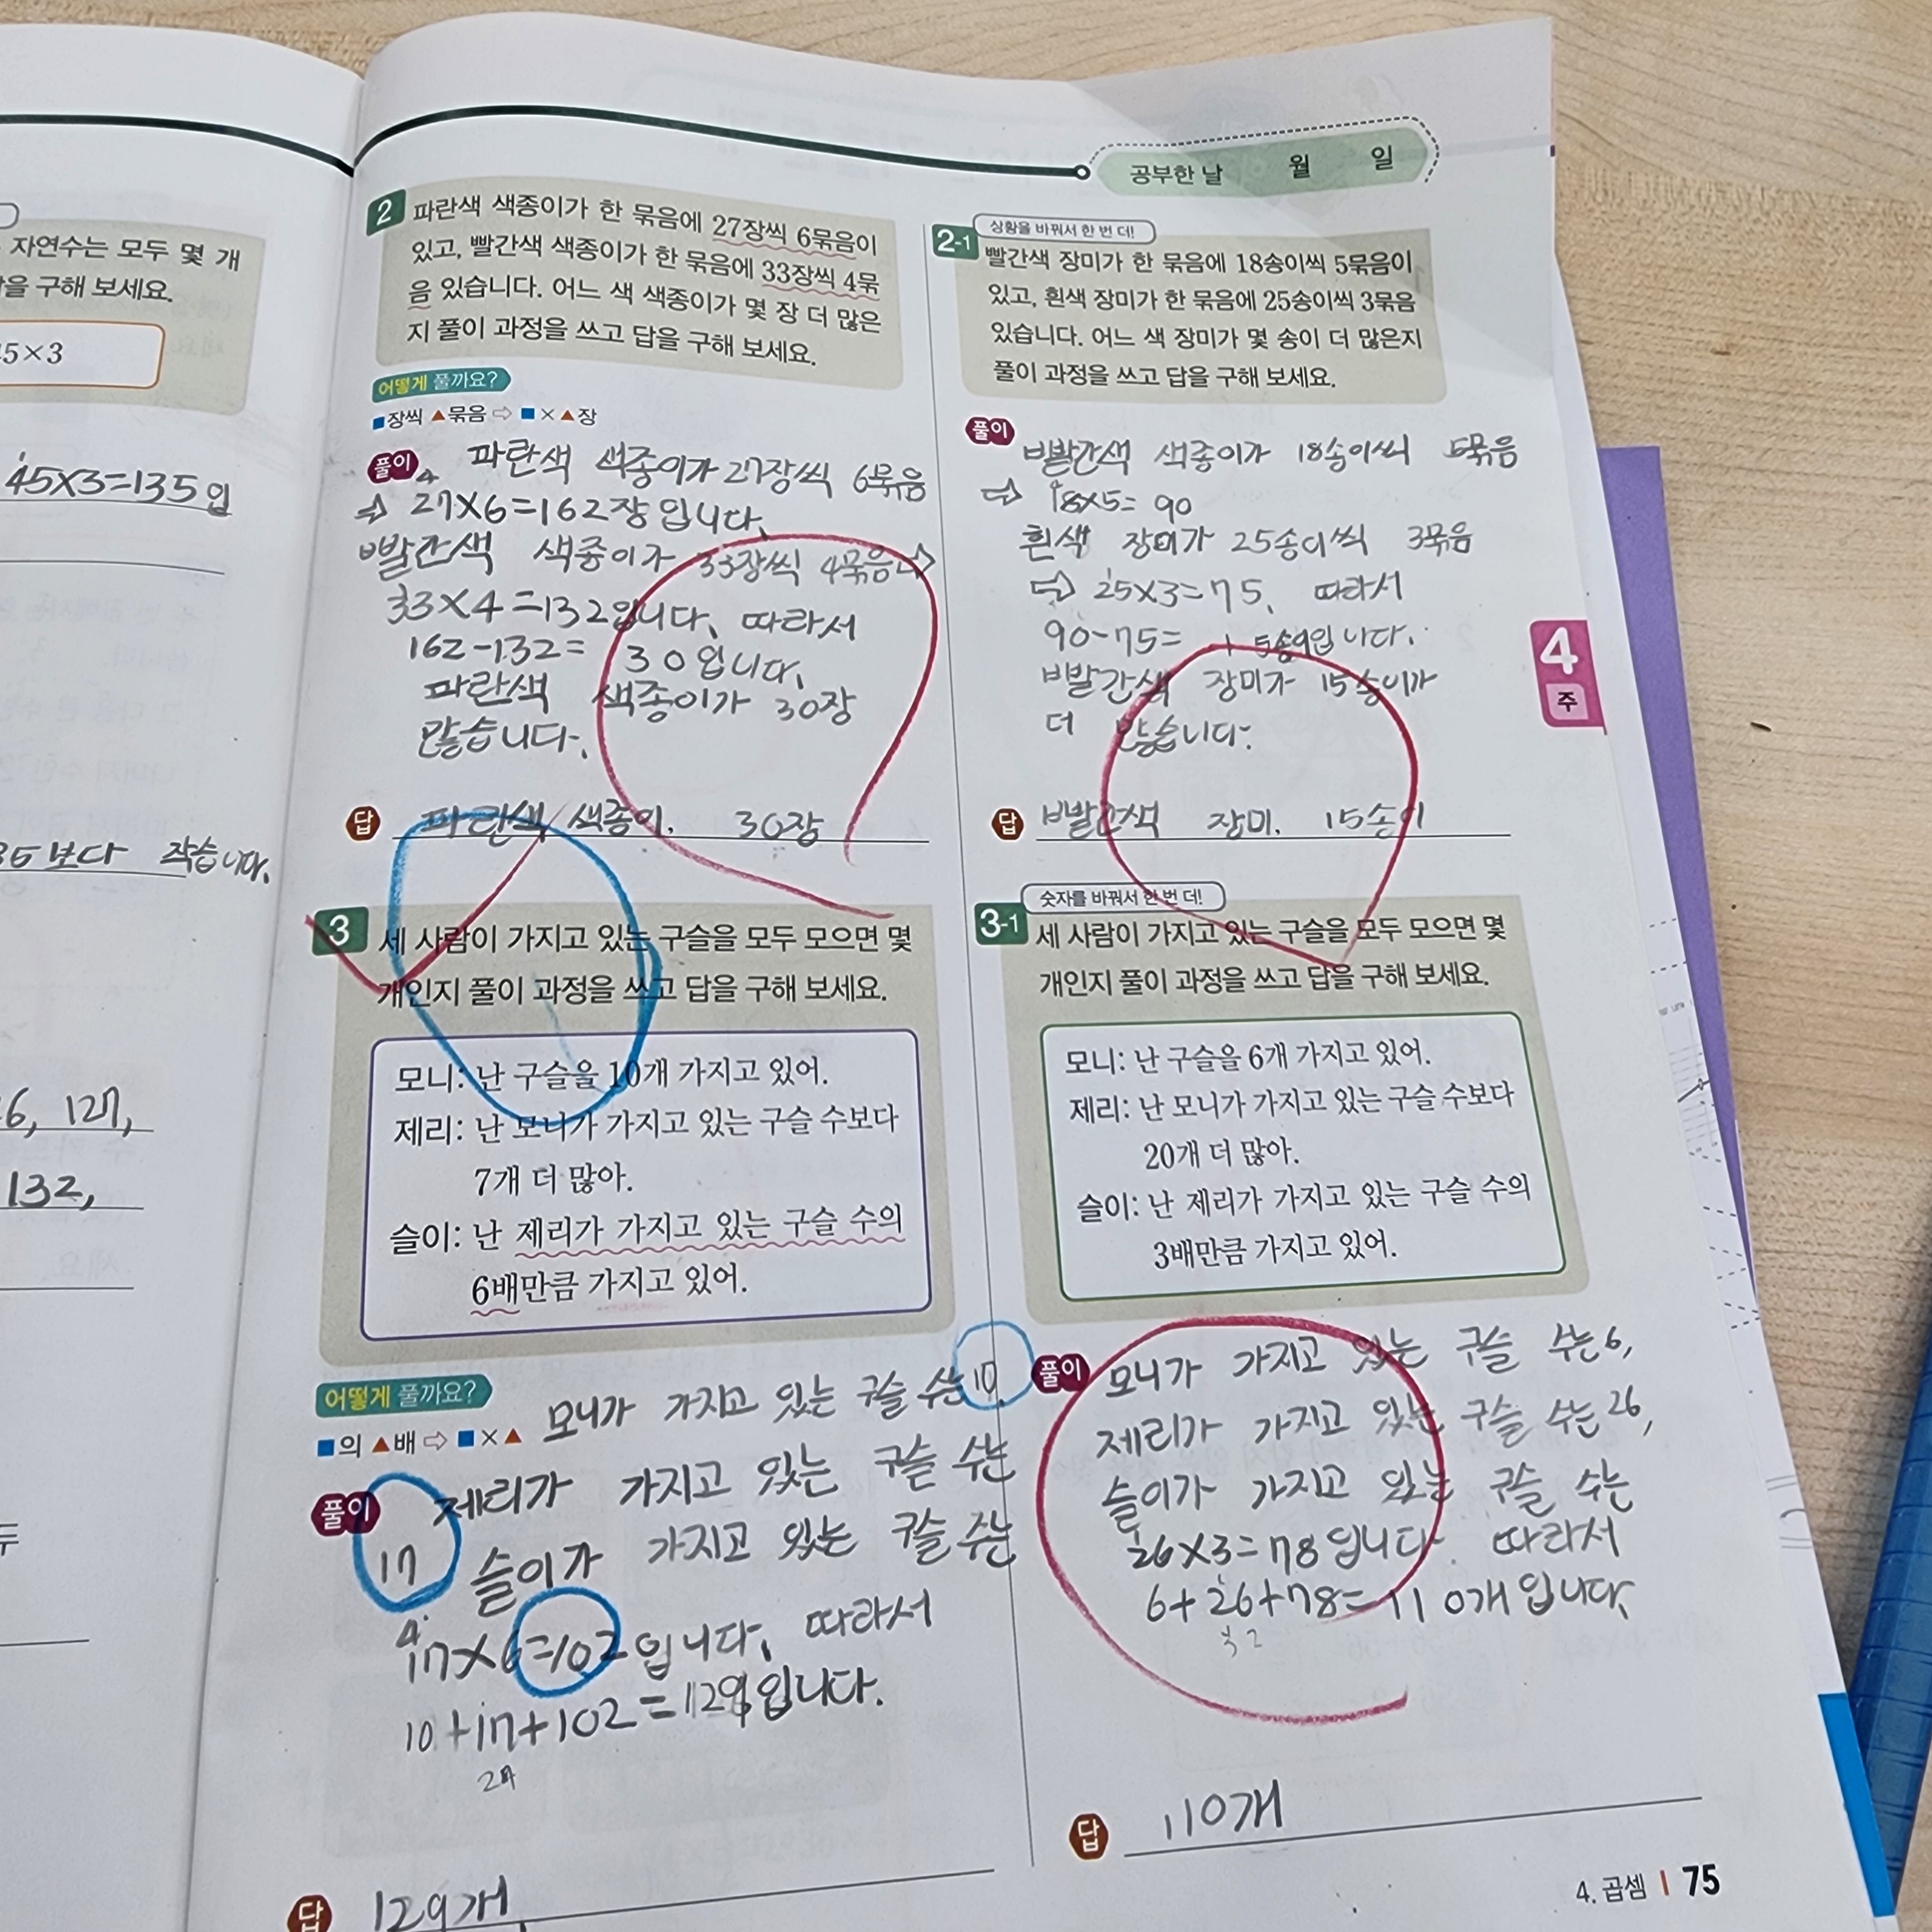 자연수는 모두 몇 개
을 구해 보세요.
5×3
45×3=135입
35보다 작습니다.
6, 127,
132,
공부한 날 월 일
2 파란색 색종이가 한 묶음에 27장씩 6묶음이
있고, 빨간색 색종이가 한 묶음에 33장씩 4묶
음 있습니다. 어느 색 색종이가 몇 장 더 많은
지 풀이 과정을 쓰고 답을 구해 보세요.
어떻게 풀까요?
■장씩 ▲묶음 ⇨ ■×▲장
풀이 파란색 색종이가 27장씩 6묶음
4
⇨ 27×6=162장입니다.
빨간색 색종이가 33장씩 4묶음⇨
33×4=132입니다. 따라서
162-132= 30입니다.
파란색 색종이가 30장
많습니다.
답 파란색 색종이. 30장
3 세 사람이 가지고 있는 구슬을 모두 모으면 몇
개인지 풀이 과정을 쓰고 답을 구해 보세요.
모니: 난 구슬을 10개 가지고 있어.
제리: 난 모니가 가지고 있는 구슬 수보다
7개 더 많아.
슬이: 난 제리가 가지고 있는 구슬 수의
6배만큼 가지고 있어.
어떻게 풀까요?
■의 ▲배 ⇨ ■×▲
모니가 가지고 있는 구슬 수는 10.
풀이 제리가 가지고 있는 구슬 수는
17 슬이가 가지고 있는 구슬 수는
4
17×6=102입니다. 따라서
10+17+102=129입니다.
27
답 129개
2-1 상황을 바꿔서 한 번 더!
빨간색 장미가 한 묶음에 18송이씩 5묶음이
있고, 흰색 장미가 한 묶음에 25송이씩 3묶음
있습니다. 어느 색 장미가 몇 송이 더 많은지
풀이 과정을 쓰고 답을 구해 보세요.
풀이 빨간색 색종이가 18송이씩 5묶음
⇨ 18×5= 90
흰색 장미가 25송이씩 3묶음
⇨ 25×3=75. 따라서
90-75= 15송이입니다.
빨간색 장미가 15송이가
더 많습니다.
답 빨간색 장미. 15송이
3-1 숫자를 바꿔서 한 번 더!
세 사람이 가지고 있는 구슬을 모두 모으면 몇
개인지 풀이 과정을 쓰고 답을 구해 보세요.
모니: 난 구슬을 6개 가지고 있어.
제리: 난 모니가 가지고 있는 구슬 수보다
20개 더 많아.
슬이: 난 제리가 가지고 있는 구슬 수의
3배만큼 가지고 있어.
풀이 모니가 가지고 있는 구슬 수는 6,
제리가 가지고 있는 구슬 수는 26,
슬이가 가지고 있는 구슬 수는
26×3=78입니다. 따라서
6+26+78=110개입니다.
32
답 110개
4
주
4. 곱셈 | 75